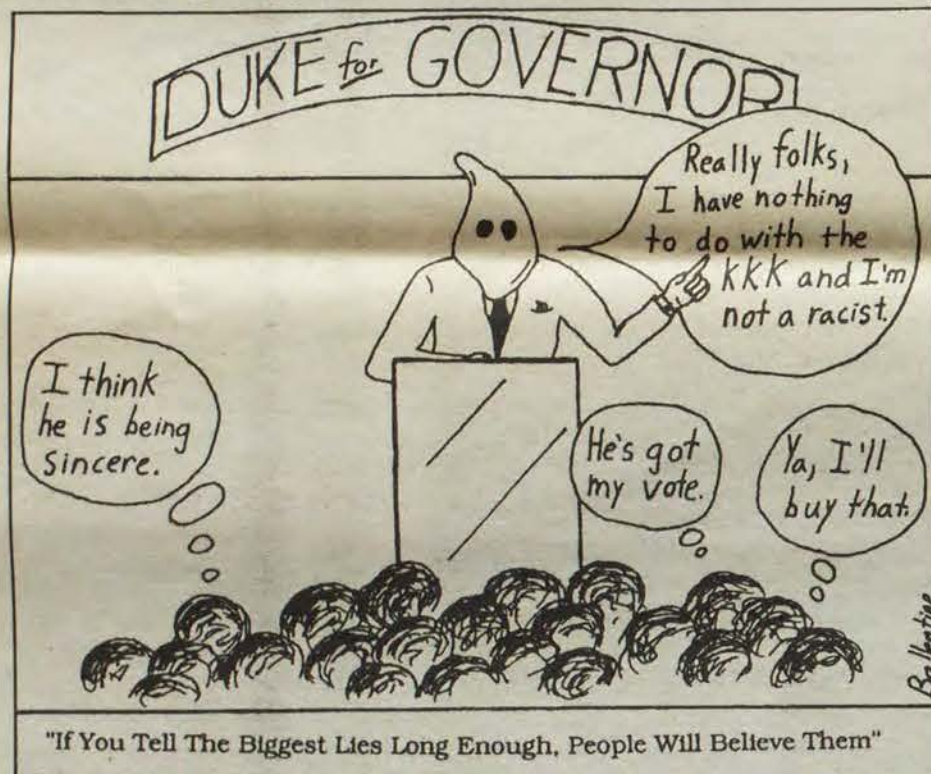 DUKE for GOVERNOR
Really folks,
I have nothing
to do with the
KKK and I'm
not a racist.
I think
he is being
sincere.
He's got
my vote.
Ya, I'll
buy that.
"If You Tell The Biggest Lies Long Enough, People Will Believe Them"